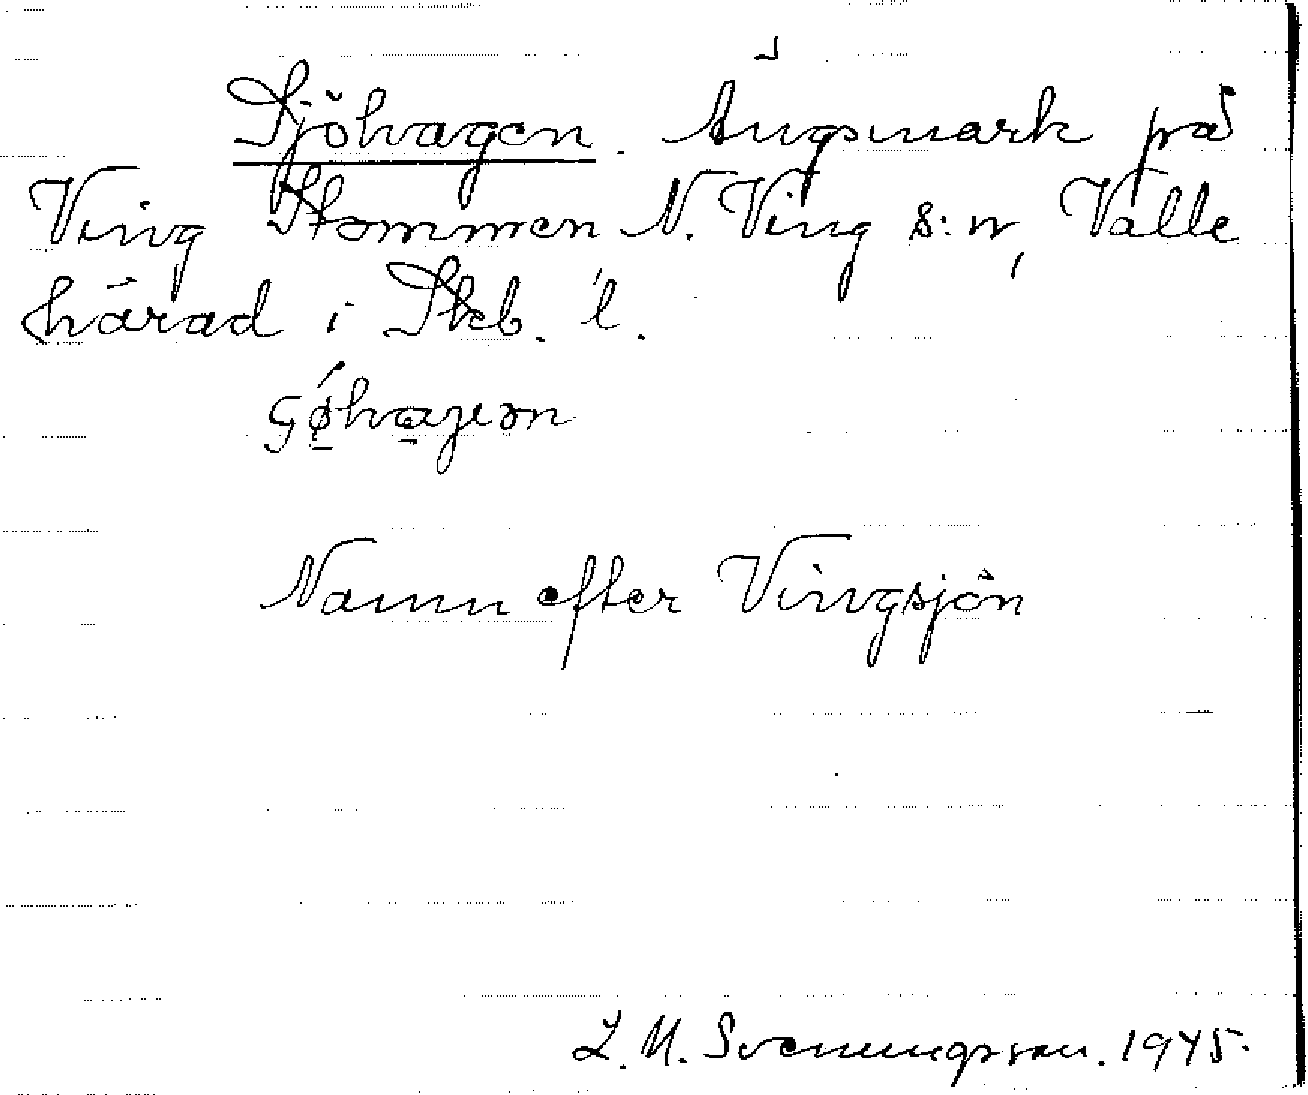 Sjöhagen. Ängsmark på
Ving Stommen N. Ving s:n, Valle
härad i Skb. l.
Namn efter Vingsjön
L. M. Svenungsson. 1945.